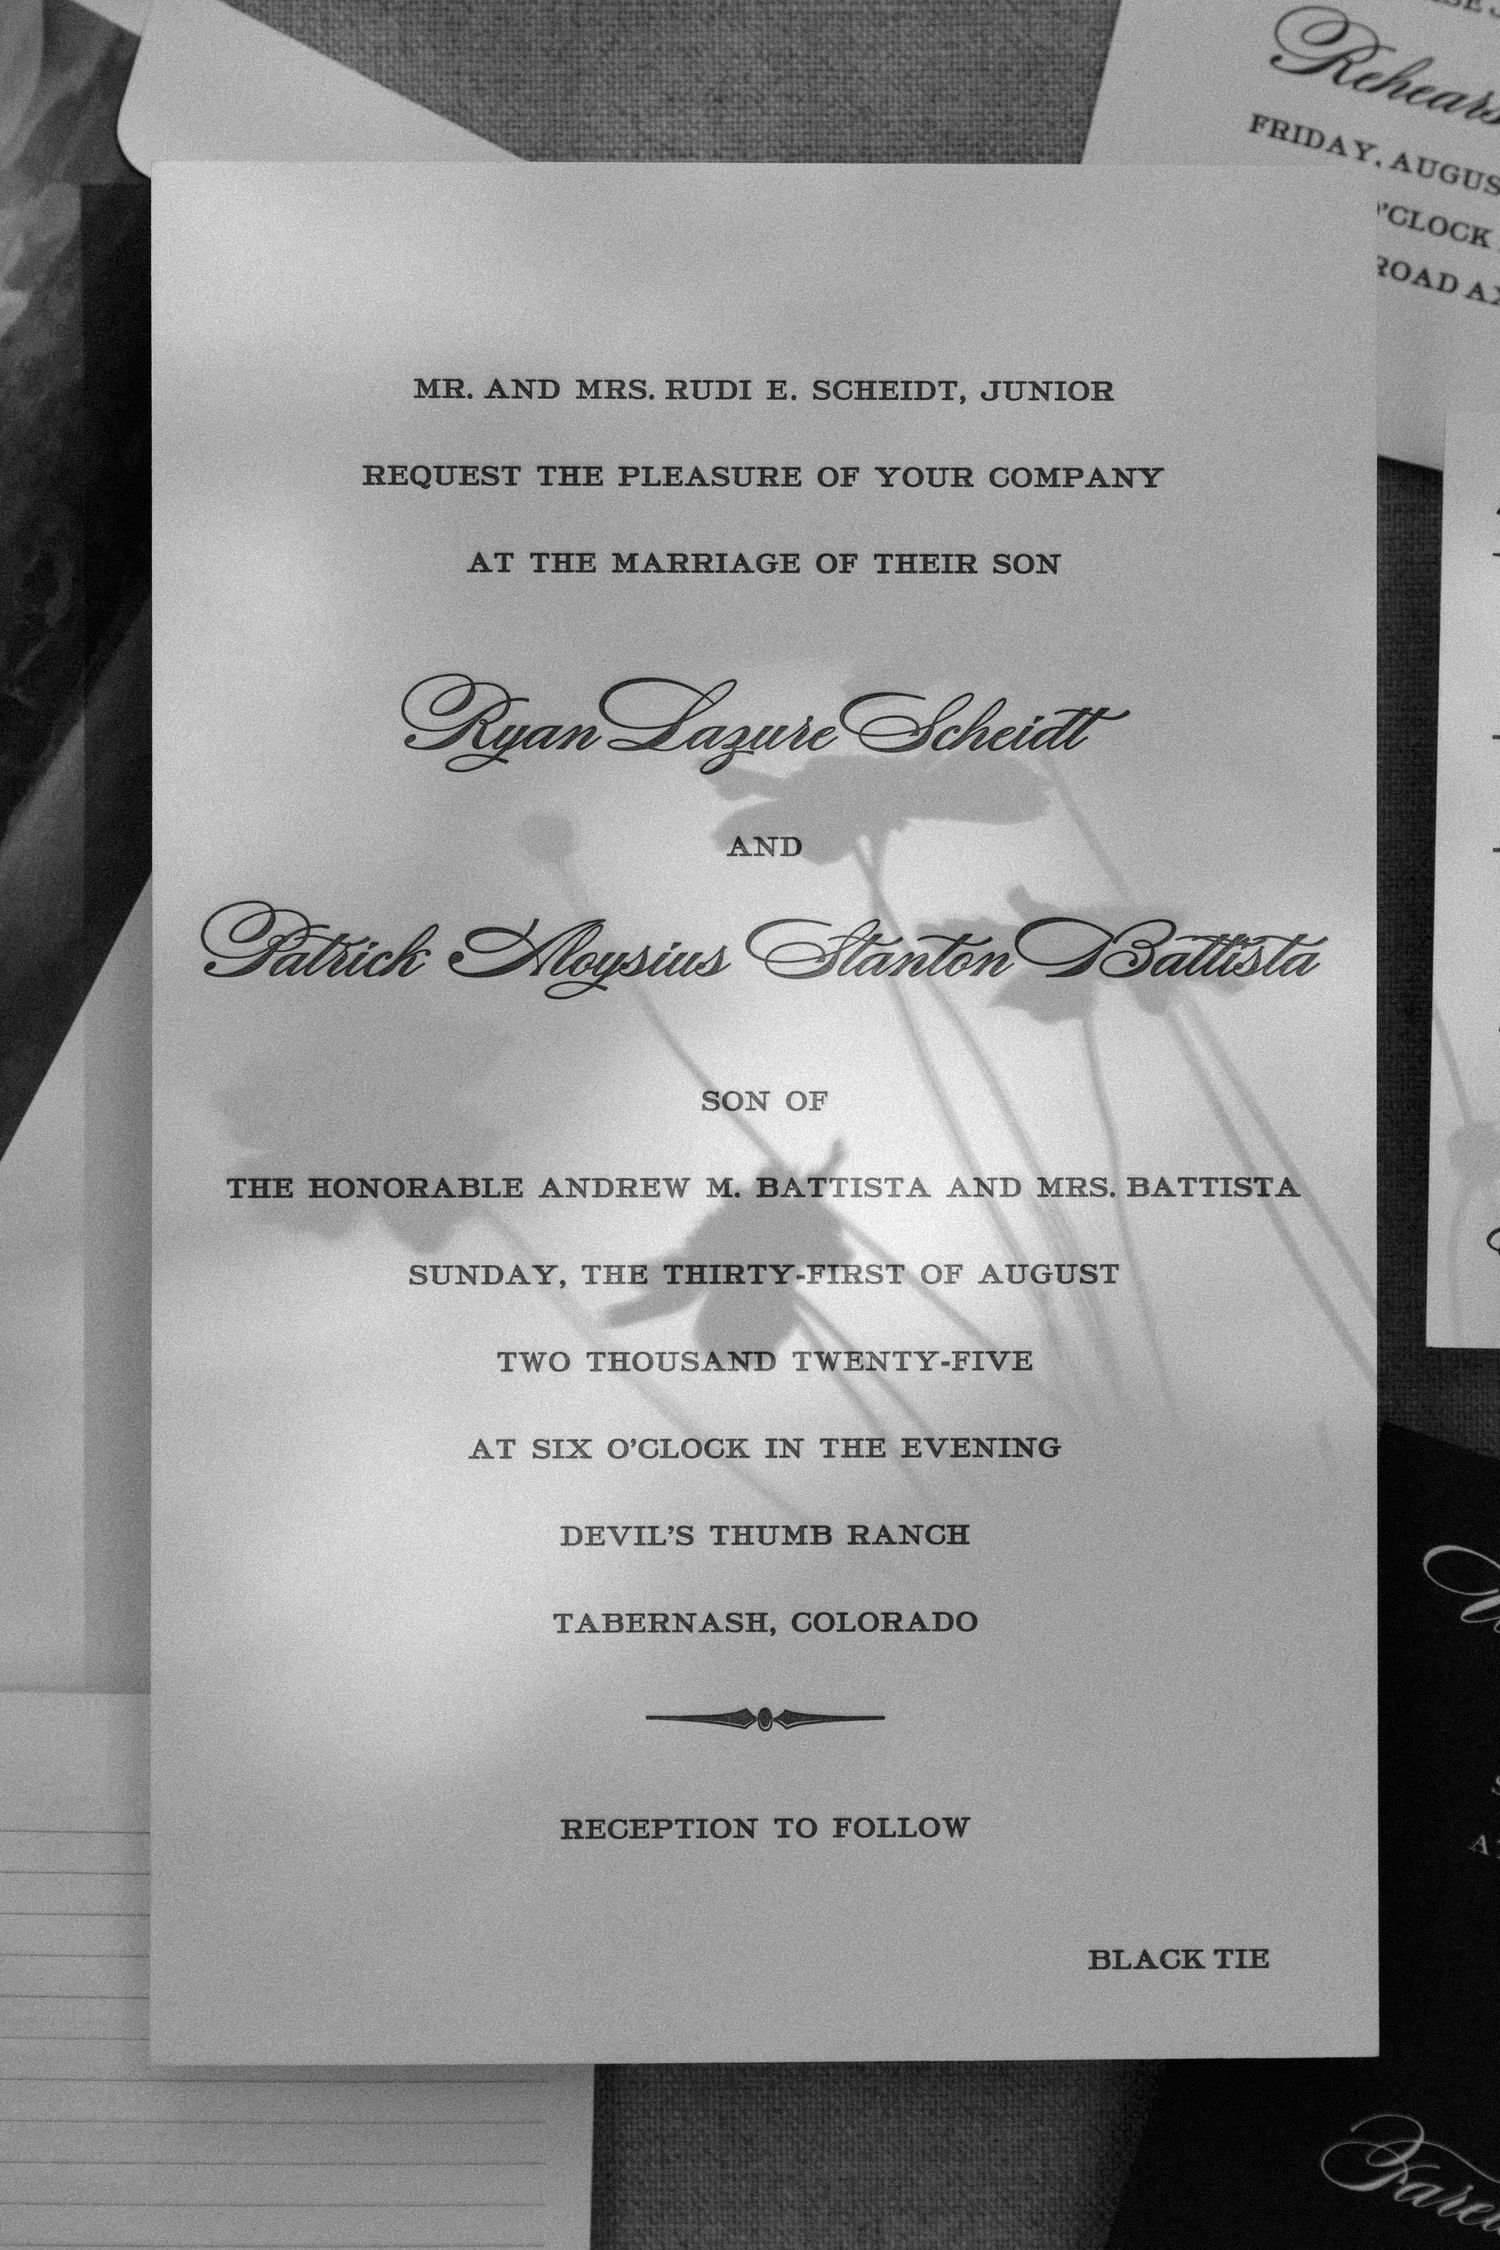 Rehears
FRIDAY, AUGUS
O'CLOCK
ROAD
MR. AND MRS. RUDI E. SCHEIDT, JUNIOR
REQUEST THE PLEASURE OF YOUR COMPANY
AT THE MARRIAGE OF THEIR SON
Ryan Lazure Scheidt
AND
Patrick Aloysius Stanton Battista
SON OF
THE HONORABLE ANDREW M. BATTISTA AND MRS. BATTISTA
SUNDAY, THE THIRTY-FIRST OF AUGUST
TWO THOUSAND TWENTY-FIVE
AT SIX O'CLOCK IN THE EVENING
DEVIL'S THUMB RANCH
TABERNASH, COLORADO
RECEPTION TO FOLLOW
BLACK TIE